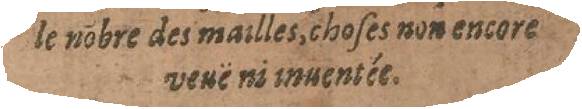 le nõbre des mailles, choſes non encore
veuë ni inuentée.